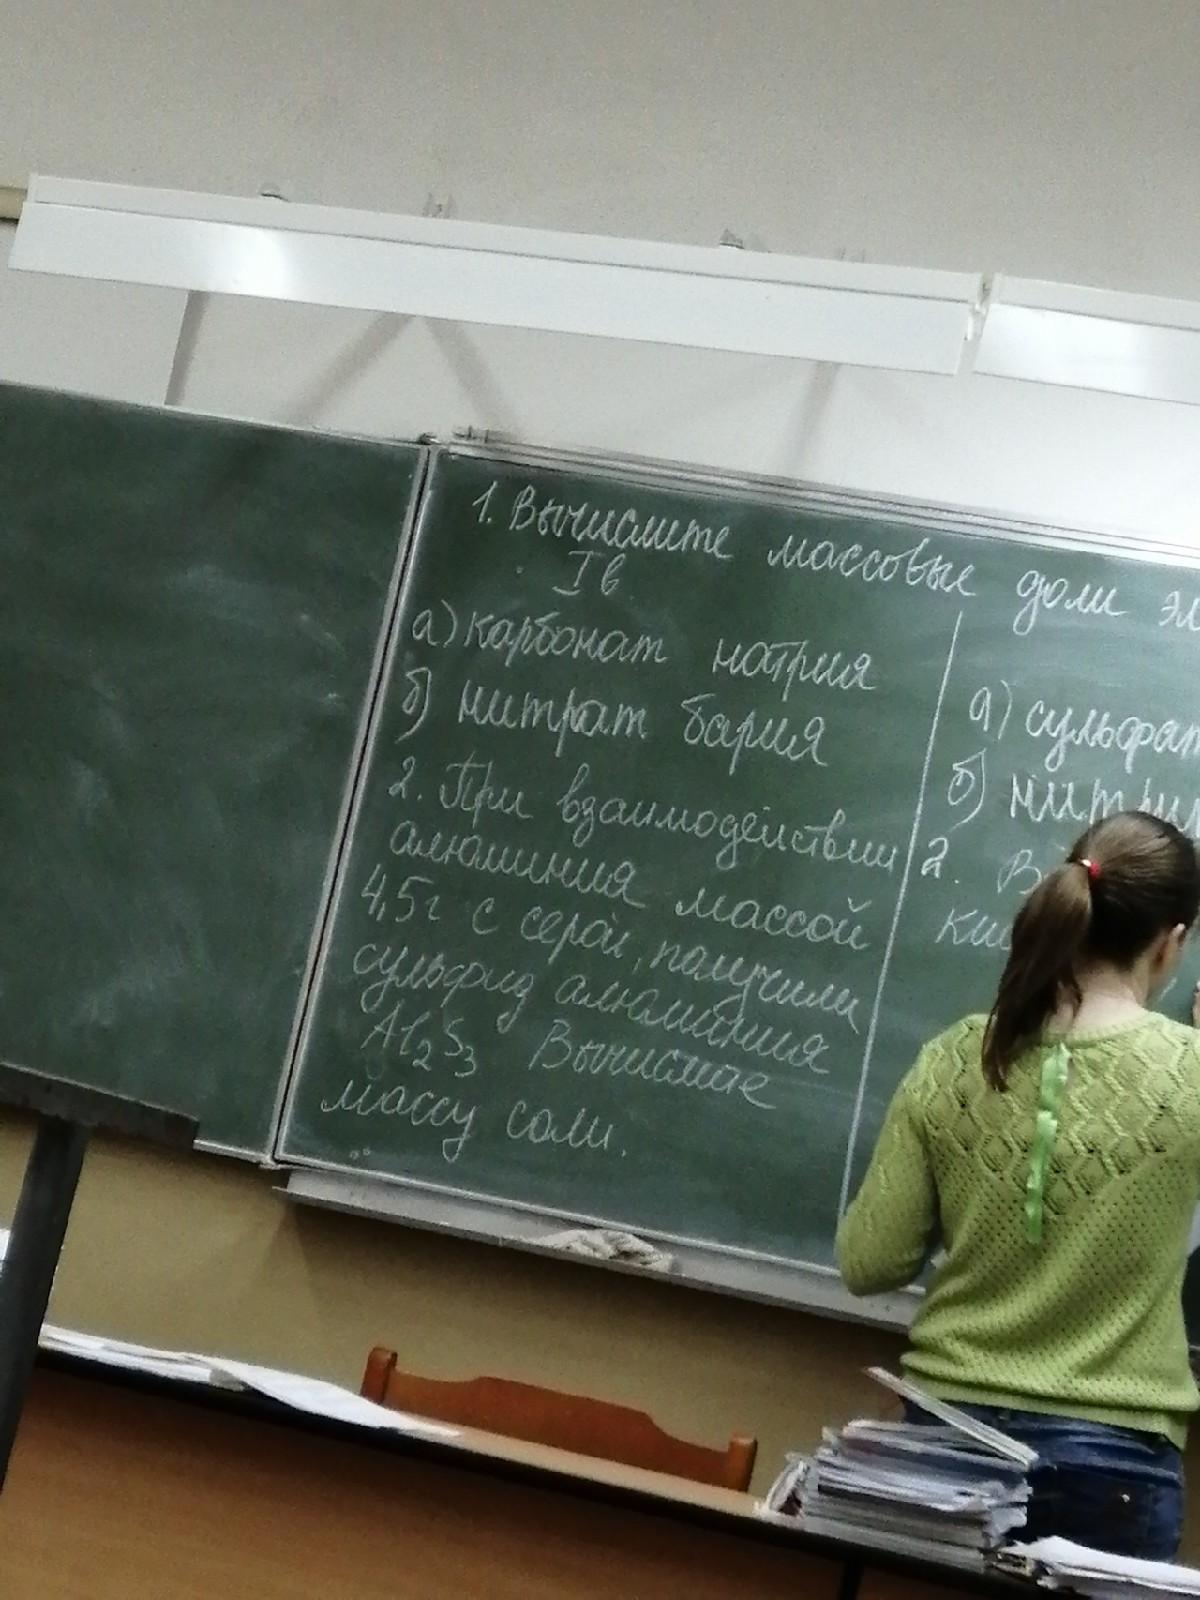 1. Вычислите массовые доли
I в
а) карбонат натрия
б) нитрат бария
2. При взаимодействии
алюминия массой
4,5г с серой, получили
сульфид алюминия
Al2S3 Вычислите
массу соли.
а) сульфат
б)
2.